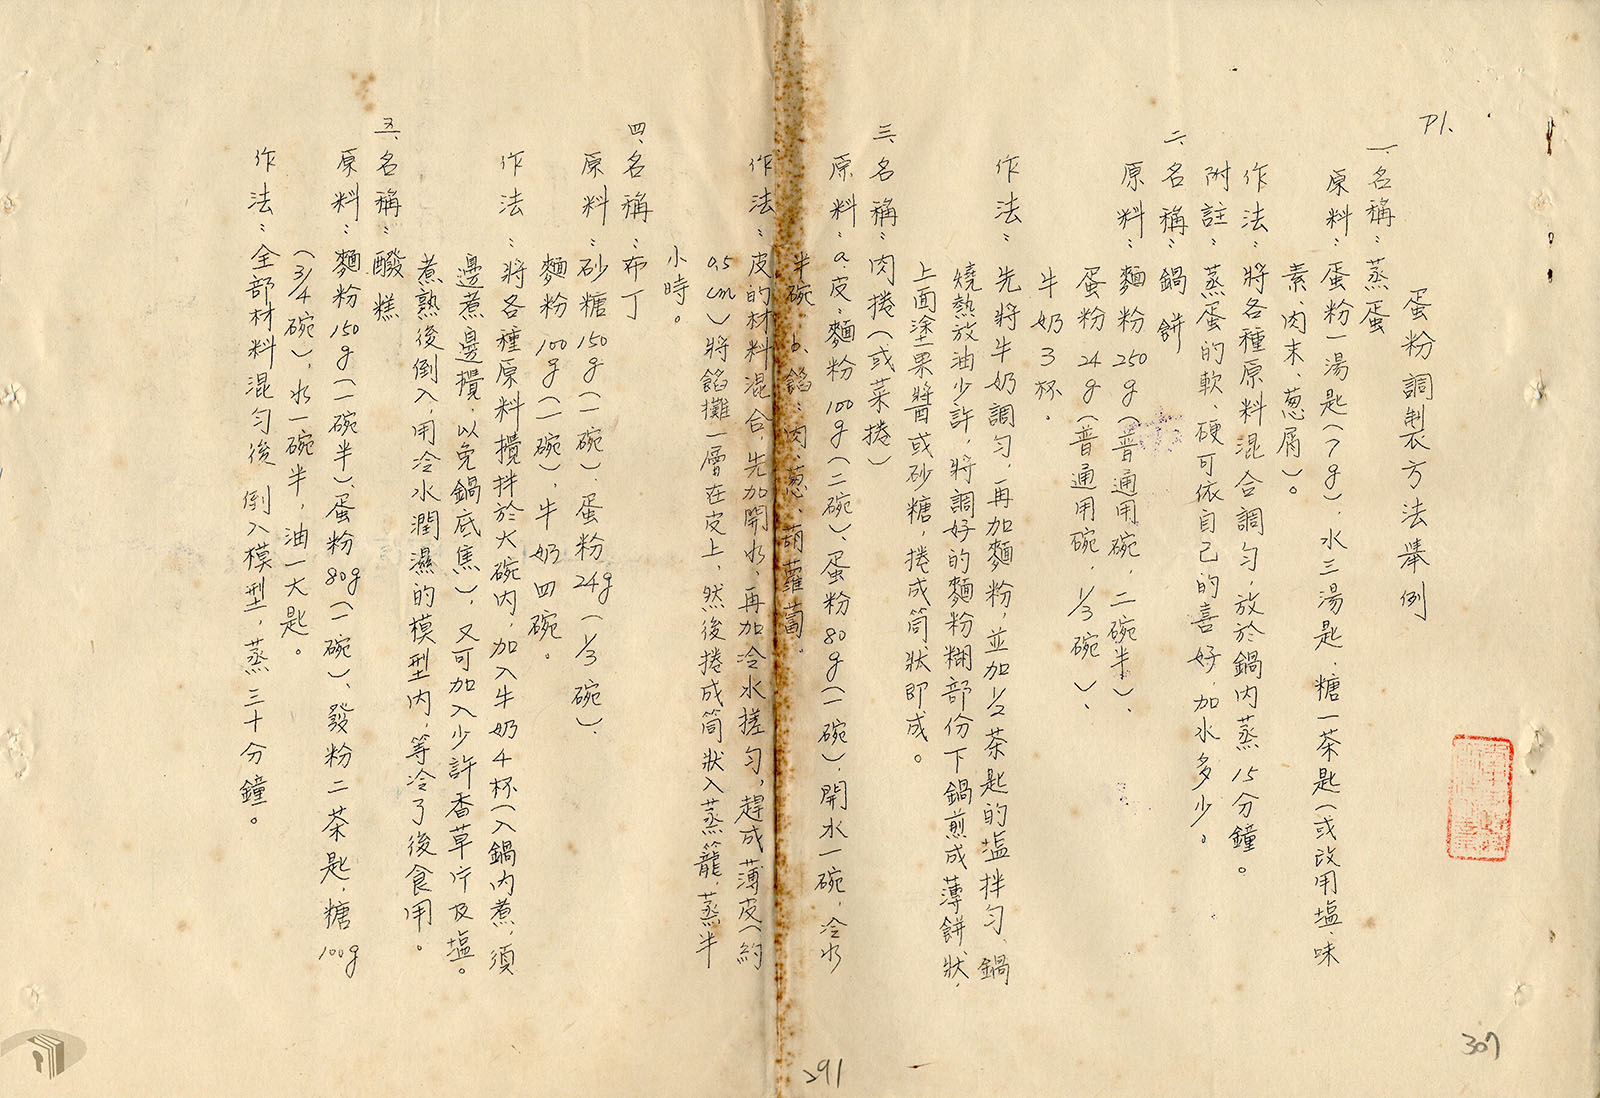 P1.
蛋粉調製方法舉例
一、名稱：蒸蛋
原料：蛋粉一湯匙（7g）、水三湯匙、糖一茶匙（或改用塩、味
素、肉末、葱屑）。
作法：將各種原料混合調勻，放於鍋內蒸15分鐘。
附註：蒸蛋的軟、硬可依自己的喜好，加水多少。
二、名稱：鍋餅
原料：麵粉250g（普通用碗，二碗半）、
蛋粉24g（普通用碗，1/3碗）、
牛奶3杯．
作法：先將牛奶調勻，再加麵粉，並加1/2茶匙的塩拌勻、鍋
燒熱放油少許，將調好的麵粉糊部份下鍋煎成薄餅狀，
上面塗果醬或砂糖，捲成筒狀即成。
三、名稱：肉捲（或菜捲）
原料：a.皮：麵粉100g（二碗）、蛋粉80g（一碗）、開水一碗，冷水
半碗 b.餡：肉、葱、葫蘿蔔。
作法：皮的材料混合，先加開水，再加冷水搓勻，趕成薄皮（約
0.5cm）將餡攤一層在皮上，然後捲成筒狀入蒸籠，蒸半
小時。
四、名稱：布丁
原料：砂糖150g（一碗）、蛋粉24g（1/3碗）、
麵粉100g（一碗），牛奶四碗。
作法：將各種原料攪拌於大碗內，加入牛奶4杯（入鍋內煮，須
邊煮邊攪，以免鍋底焦），又可加入少許香草片及塩。
煮熟後倒入，用冷水潤濕的模型內，等冷了後食用。
五、名稱：醱糕
原料：麵粉150g（一碗半）、蛋粉80g（一碗）、發粉二茶匙，糖100g
（3/4碗），水一碗半，油一大匙。
作法：全部材料混勻後倒入模型，蒸三十分鐘。
307
291